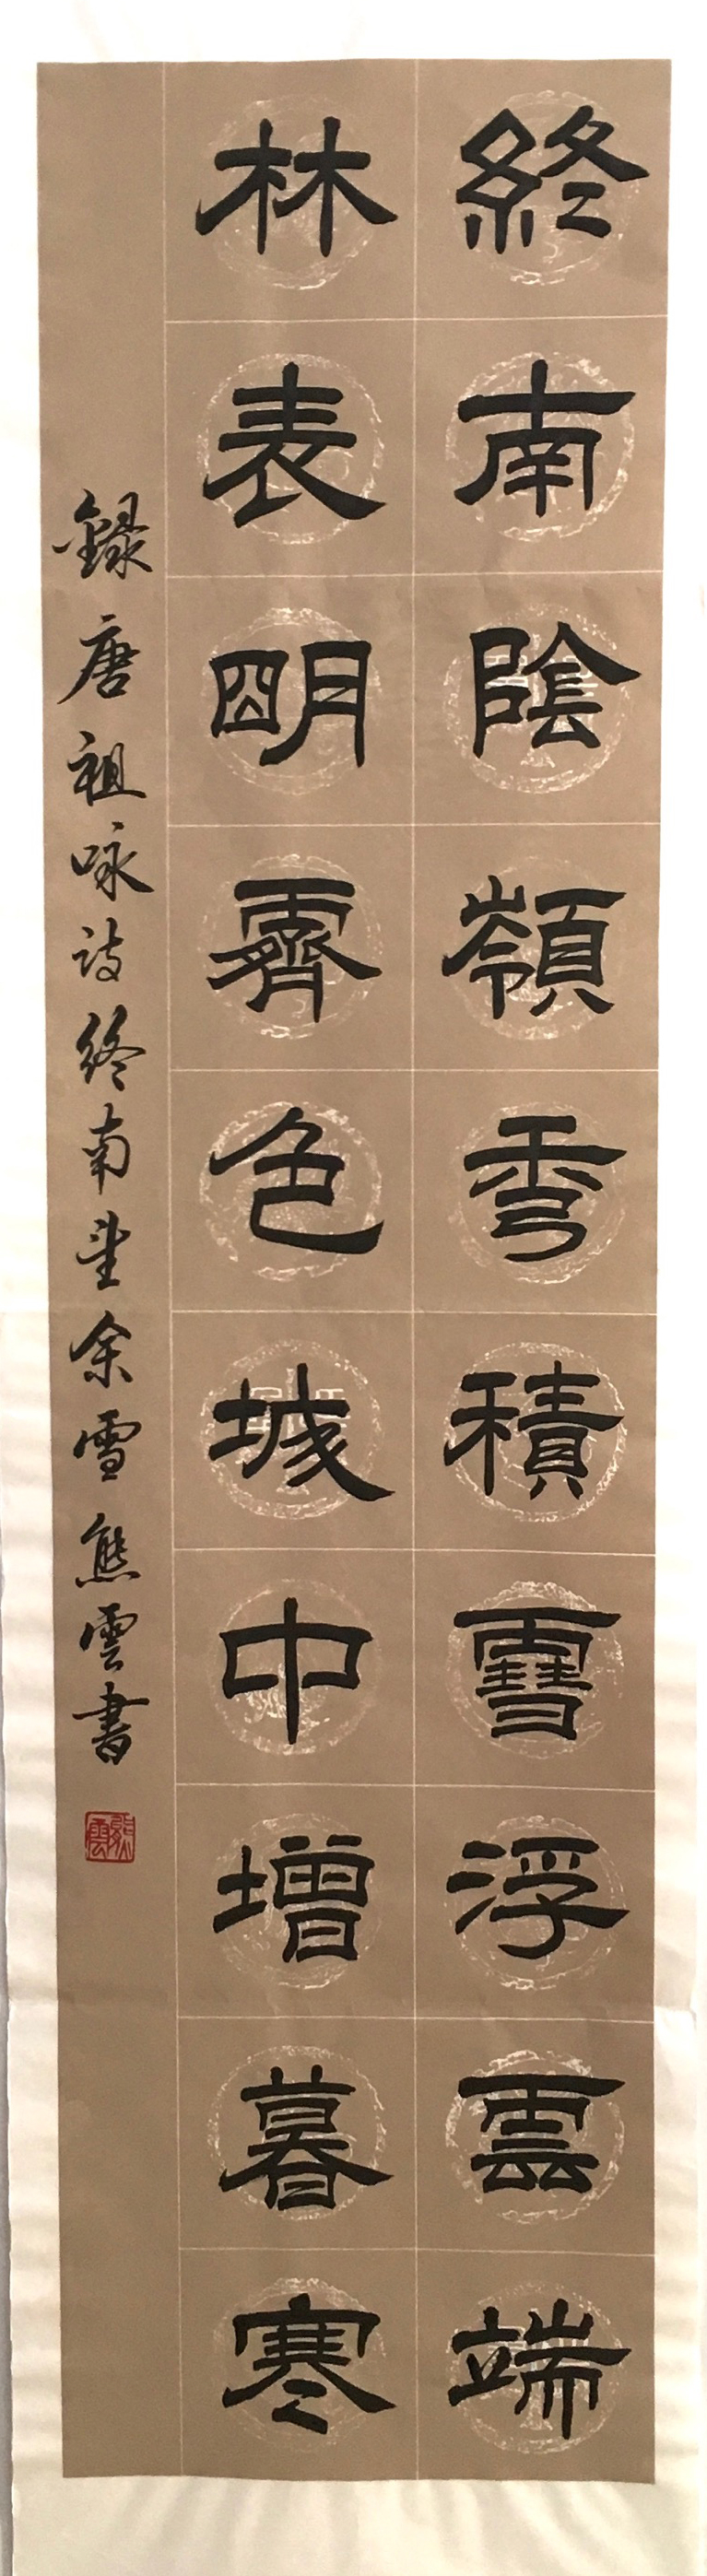 終南陰嶺秀積雪浮雲端
林表明霽色城中增暮寒
錄唐祖咏詩終南望余雪熊雲書
熊雲